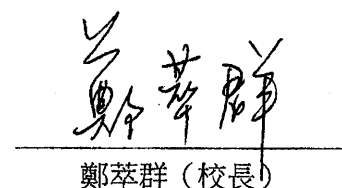 鄭萃群
鄭萃群（校長）